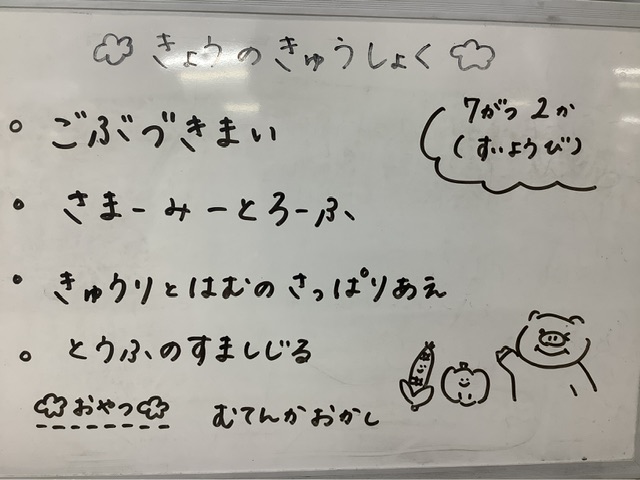 きょうのきゅうしょく
7がつ2か
(すいようび)
ごぶづきまい
さまーみーとろーふ
きゅうりとはむのさっぱりあえ
とうふのすましじる
おやつ むてんかおかし